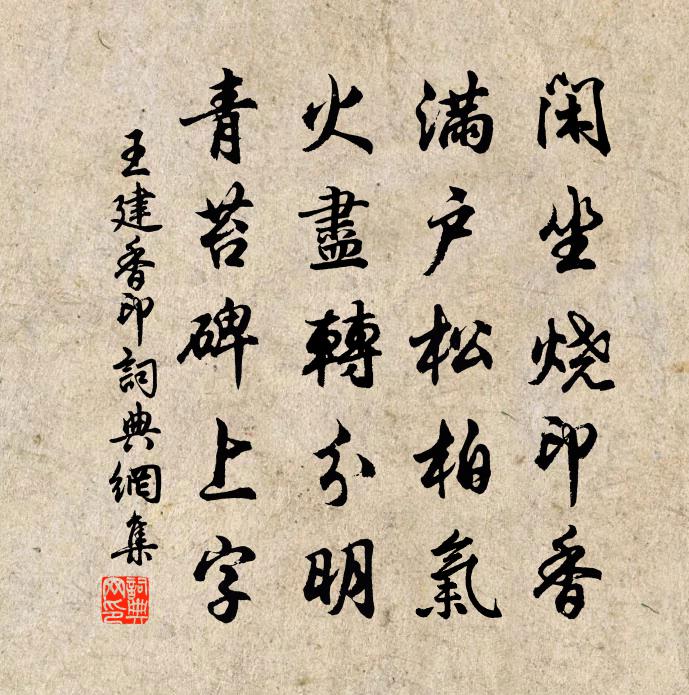 閑坐烧印香
满户松柏氣
火盡轉分明
青苔碑上字
王建香印詞典網集
詞典网印